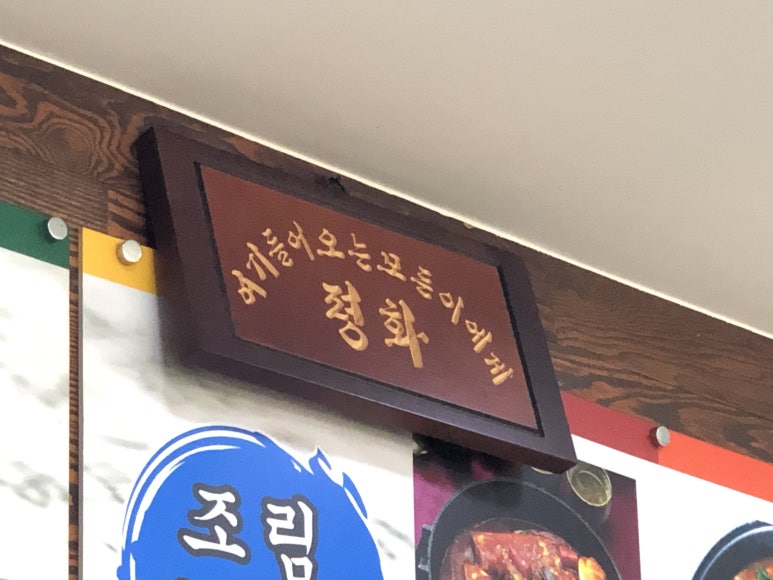 여기들어오는모든이에게
평화
조림